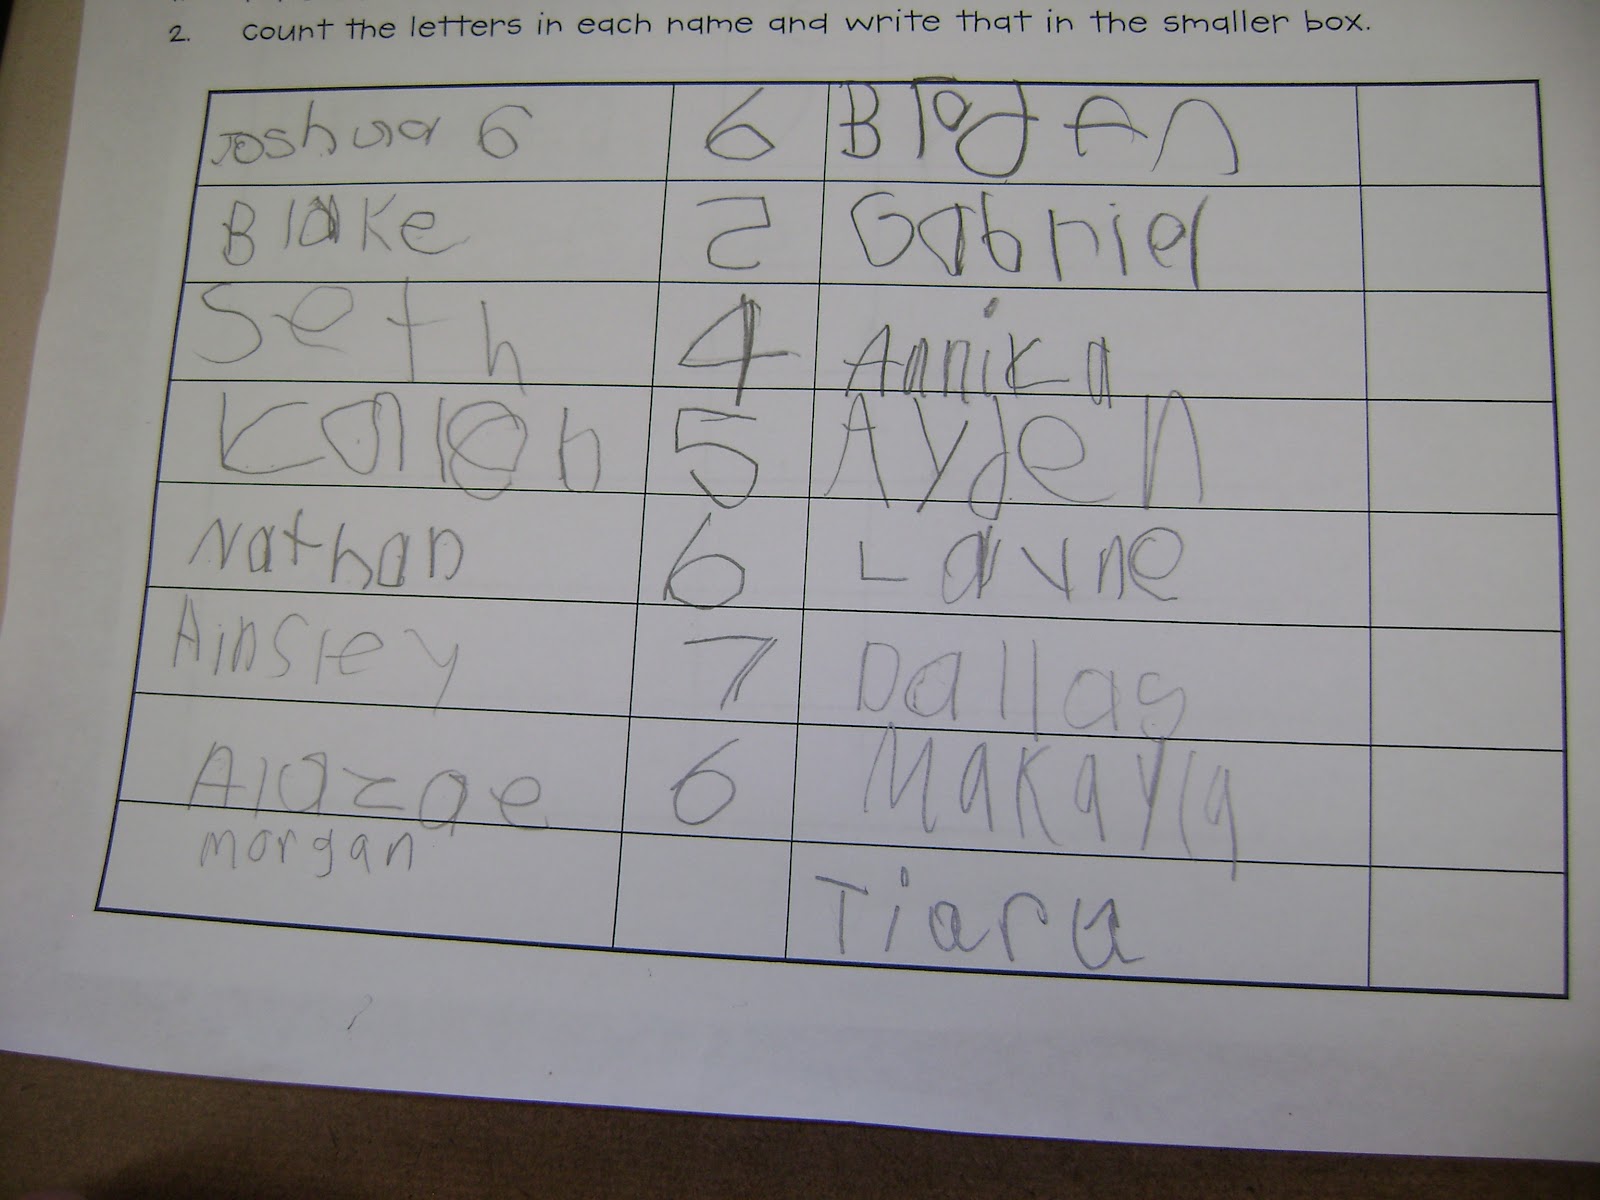 2. count the letters in each name and write that in the smaller box.
Joshua 6 6 Bladen
Blake 2 Gabriel
Seth 4 Annika
Kaleb 5 Ayden
Nathan 6 Layne
Ainsley 7 Dallas
Alazae 6 Makayla
morgan Tiara